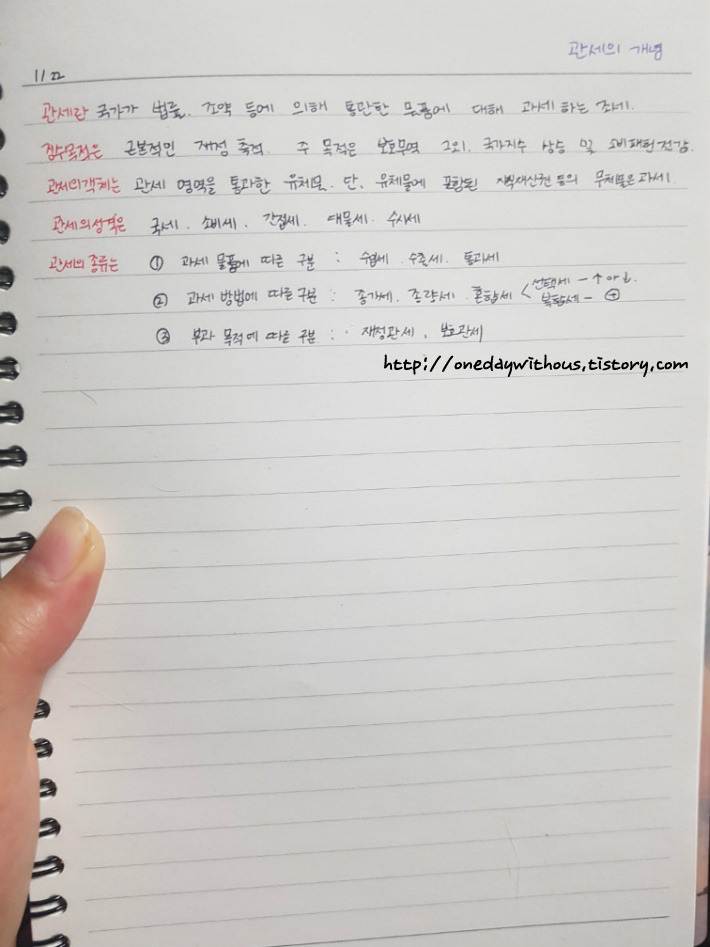 관세의 개념
11/22
관세란 국가가 법률, 조약 등에 의해 통관한 물품에 대해 과세하는 조세.
징수목적은 근본적인 재정 축적. 주 목적은 보호무역 그외. 국가지수 상승 및 소비패턴 전감.
관세의객체는 관세 영역을 통과한 유체물. 단, 유체물에 포함된 지식재산권 등의 무체물은 과세.
관세의성격은 국세. 소비세. 간접세. 대물세. 수시세
관세의 종류는 ① 과세 물품에 따른 구분 : 수입세. 수출세. 통과세
② 과세 방법에 따른 구분 : 종가세. 종량세. 혼합세 < 선택세 - ↑ or ↓.
복합세 - ⊕
③ 부과 목적에 따른 구분 : 재정관세, 보호관세
http://onedaywithous.tistory.com